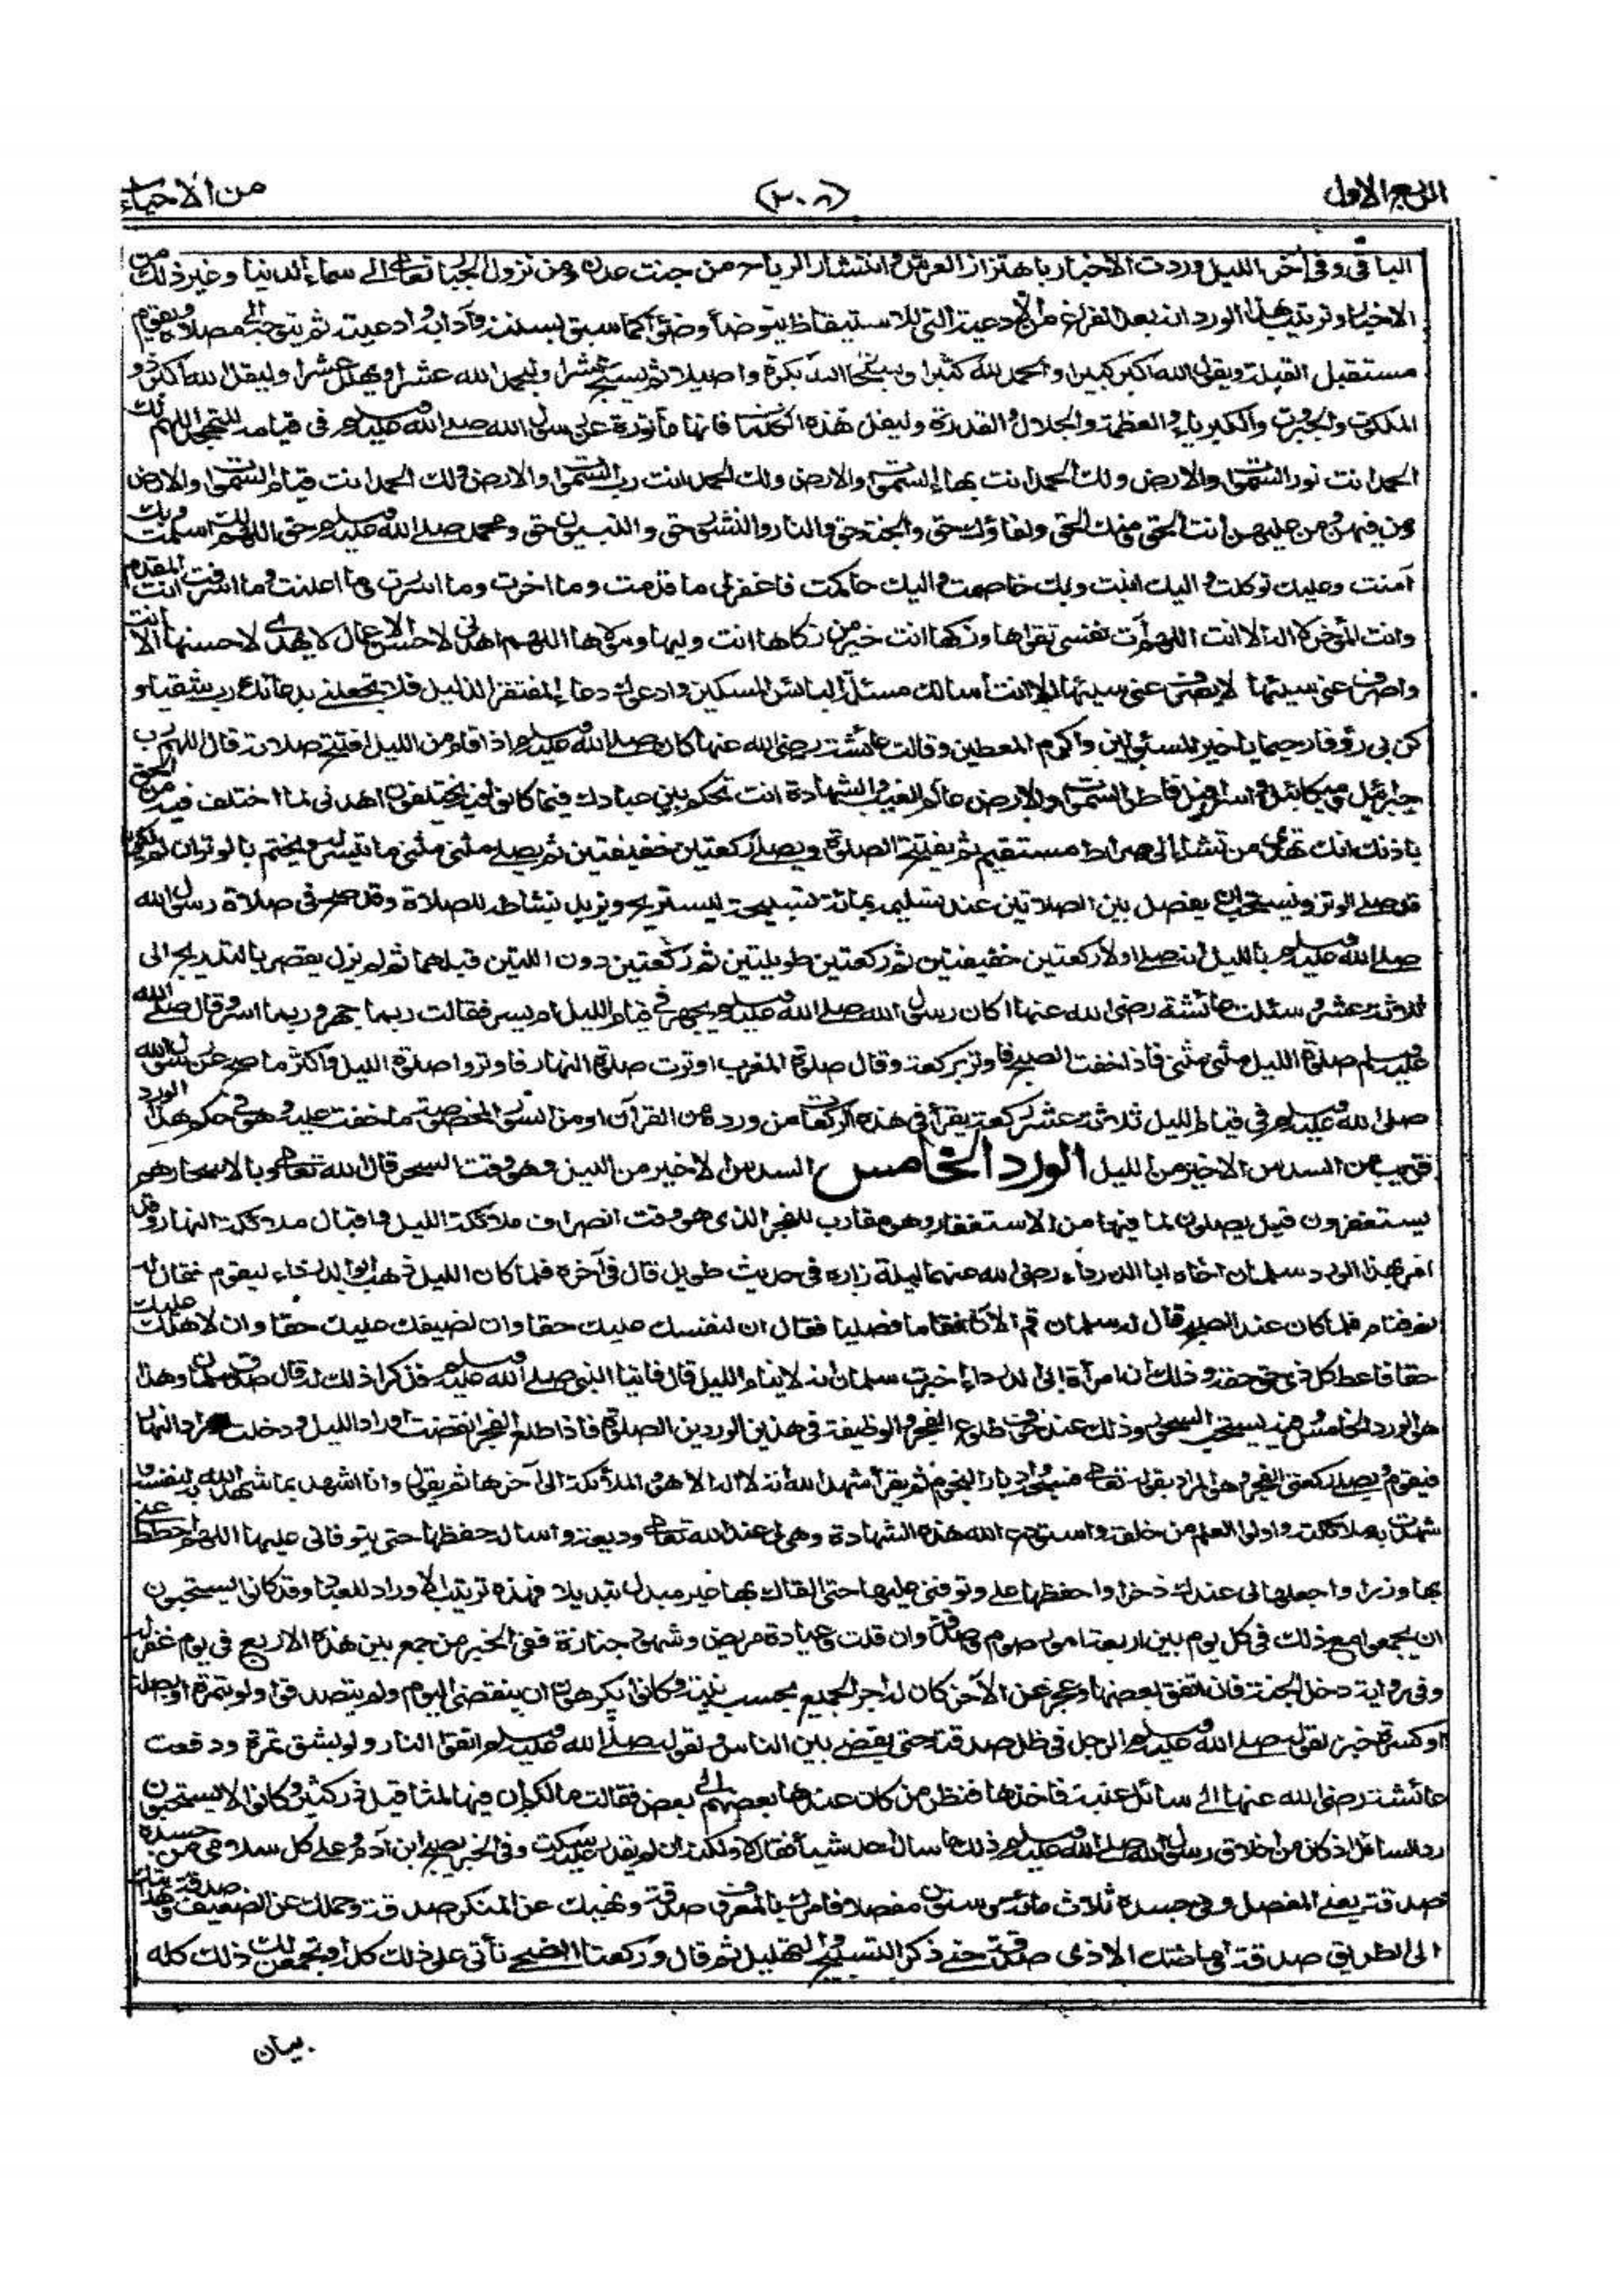 الربع الاول
(٣٠٨)
من الاحياء
الباقى وفى آخر الليل وردت الاخبار باهتزاز العرش وانتشار الرياح من جنت عدن ومن نزول الجبار تعالى الى سماء الدنيا وغير ذلك من
الاخبار وترتيب هذا الورد انه بعد الفراغ من الادعية التى للاستيقاظ يتوضأ وضوأ كما سبق بسننه وآدابه وادعيته ثم يتوجه الى مصلاه ويقوم
مستقبل القبلة ويقول الله اكبر كبيرا والحمد لله كثيرا وسبحان الله بكرة واصيلا ثم يسبح عشرا وليحمد الله عشرا ويهلل عشرا وليقل الله اكبر ذو
الملكوت والجبروت والكبرياء والعظمة والجلال والقدرة وليقل هذه الكلمات فانها مأثورة عن رسول الله صلى الله عليه وسلم فى قيامه للتهجد اللهم لك
الحمد انت نور السموات والارض ولك الحمد انت بهاء السموات والارض ولك الحمد انت رب السموات والارض ولك الحمد انت قيام السموات والارض
ومن فيهن ومن عليهن انت الحق ومنك الحق ولقاؤك حق والجنة حق والنار حق والنشور حق والنبيون حق ومحمد صلى الله عليه وسلم حق اللهم لك اسلمت وبك
آمنت وعليك توكلت واليك انبت وبك خاصمت واليك حاكمت فاغفر لى ما قدمت وما اخرت وما اسررت وما اعلنت وما اسرفت انت المقدم
وانت المؤخر لا اله الا انت اللهم آت نفسى تقواها وزكها انت خير من زكاها انت وليها ومولاها اللهم اهدنى لاحسن الاعمال لا يهدى لاحسنها الا انت
واصرف عنى سيئها لا يصرف عنى سيئها الا انت أسالك مسئلة البائس المسكين وادعوك دعاء المفتقر الذليل فلا تجعلنى بدعائك رب شقيا و
كن بى رؤفا رحيما يا خير المسئولين واكرم المعطين وقالت عائشة رضى الله عنها كان صلى الله عليه وسلم اذا قام من الليل افتتح صلاته قال اللهم رب
جبرئيل وميكائيل واسرافيل فاطر السموات والارض عالم الغيب والشهادة انت تحكم بين عبادك فيما كانوا فيه يختلفون اهدنى لما اختلف فيه من الحق
باذنك انك تهدى من تشاء الى صراط مستقيم ثم يفتتح الصلوة ويصلى ركعتين خفيفتين ثم يصلى مثنى مثنى ما تيسر له ويختم بالوتر ان لم يكن
قد صلى الوتر ويستحب ان يفصل بين الصلاتين عند تسليمه بمائة تسبيحة ليستريح ويزيد نشاطه للصلاة وقد صح فى صلاة رسول الله
صلى الله عليه وسلم بالليل انه صلى اولا ركعتين خفيفتين ثم ركعتين طويلتين ثم ركعتين دون اللتين قبلهما ثم لم يزل يقصر بالتدريج الى
ثلاث عشرة وسئلت عائشة رضى الله عنها اكان رسول الله صلى الله عليه وسلم يجهر فى قيام الليل ام يسر فقالت ربما جهر وربما اسر وقال صلى الله
عليه وسلم صلوة الليل مثنى مثنى فاذا خفت الصبح فاوتر بركعة وقال صلوة المغرب اوترت صلوة النهار فاوتروا صلوة الليل واكثر ما صح عن رسول الله
صلى الله عليه وسلم فى قيام الليل ثلاث عشرة ركعة يقرأ فى هذه الركعات من ورده من القرآن او من السور المخصوصة ما خفت عليه وهو فى حكم هذا الورد
قريب من السدس الاخير من الليل الورد الخامس السدس الاخير من الليل وهو وقت السحر قال الله تعالى وبالاسحار هم
يستغفرون قيل يصلون لما فيها من الاستغفار وهو مقارب للفجر الذى هو وقت انصراف ملائكة الليل واقبال ملائكة النهار وقد
امر بهذا الورد سلمان اخاه ابا الدرداء رضى الله عنهما ليلة زاره فى حديث طويل قال فى آخره فلما كان الليل ذهب ابو الدرداء ليقوم فقال له
نم فنام فلما كان عند الصبح قال له سلمان قم الآن فقاما فصليا فقال ان لنفسك عليك حقا وان لضيفك عليك حقا وان لاهلك عليك
حقا فاعط كل ذى حق حقه وذلك ان امرأة ابى الدرداء اخبرت سلمان انه لا ينام الليل قال فاتيا النبى صلى الله عليه وسلم فذكرا ذلك له قال صدق سلمان وهذا
هو الورد الخامس وفيه يستحب السحور وذلك عند خوف طلوع الفجر والوظيفة فى هذين الوردين الصلوة فاذا طلع الفجر انقضت اوراد الليل ودخلت اوراد النهار
فيقوم ويصلى ركعتى الفجر وهو المراد بقوله تعالى فسبحه وادبار النجوم ثم يقرأ شهد الله انه لا اله الا هو والملائكة الى آخرها ثم يقول وانا اشهد بما شهد الله به لنفسه و
شهدت به ملائكته واولوا العلم من خلقه واستودع الله هذه الشهادة وهى لى عند الله تعالى وديعة واساله حفظها حتى يتوفانى عليها اللهم احطط عنى
بها وزرا واجعلها لى عندك ذخرا واحفظها على وتوفنى عليها حتى القاك بها غير مبدل تبديلا فهذه ترتيب الاوراد للعباد وقد كانوا يستحبون
ان يجمعوا مع ذلك فى كل يوم بين اربعة امور صوم وصدقة وان قلت وعيادة مريض وشهود جنازة ففى الخبر من جمع بين هذه الاربع فى يوم غفر له
وفى رواية دخل الجنة فان اتفق بعضها وعجز عن الآخر كان له اجر الجميع بحسب نيته وكانوا يكرهون ان ينقضى اليوم ولم يتصدقوا ولو بتمرة او بصلة
او كسرة خبز لقوله صلى الله عليه وسلم الرجل فى ظل صدقته حتى يقضى بين الناس ولقوله صلى الله عليه وسلم اتقوا النار ولو بشق تمرة ودفعت
عائشة رضى الله عنها الى سائل عنبة فاخذها فنظر من كان عندها بعضهم الى بعض فقالت ما لكم ان فيها لمثاقيل ذر كثير وكانوا لا يستحبون
رد السائل اذ كان من اخلاق رسول الله صلى الله عليه وسلم ذلك ما ساله احد شيأ فقال لا ولكنه ان لم يقدر عليه سكت وفى الخبر يصبح ابن آدم وعلى كل سلامى من جسده
صدقة يعنى المفصل وفى جسده ثلاث مائة وستون مفصلا فامرك بالمعروف صدقة ونهيك عن المنكر صدقة وحملك عن الضعيف صدقة وهدايتك
الى الطريق صدقة واماطتك الاذى صدقة حتى ذكر التسبيح والتهليل ثم قال وركعتا الضحى تأتى على ذلك كله او تجمعن لك ذلك كله
بيان